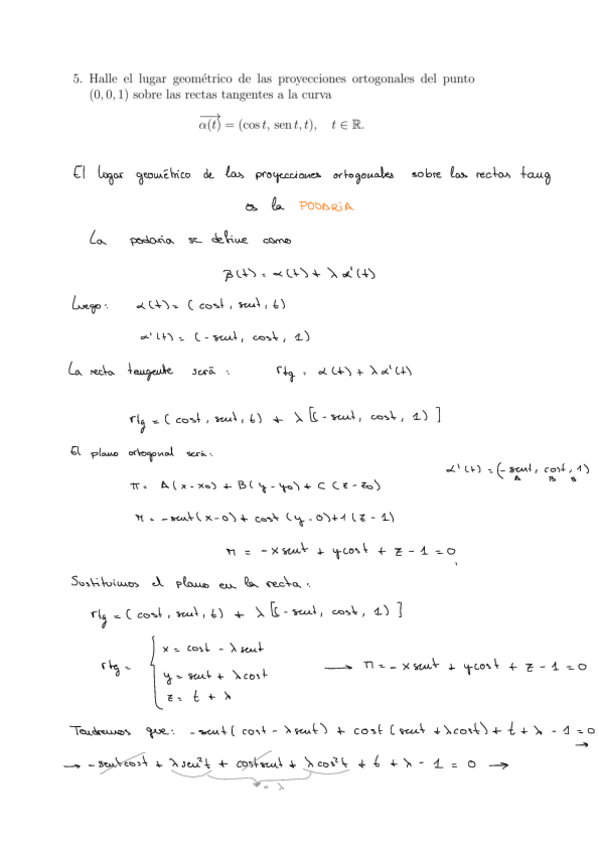 5. Halle el lugar geométrico de las proyecciones ortogonales del punto
(0, 0, 1) sobre las rectas tangentes a la curva
α(t) = (cos t, sen t, t), t ∈ ℝ.
El lugar geométrico de las proyecciones ortogonales sobre las rectas tang
es la PODARIA
La podaria se define como
β(t) = α(t) + λ α'(t)
Luego: α(t) = (cost, sent, t)
α'(t) = (-sent, cost, 1)
La recta tangente será: rtg = α(t) + λ α'(t)
rtg = (cost, sent, t) + λ [(-sent, cost, 1)]
El plano ortogonal será:
α'(t) = (-sent, cost, 1)
A B B
π = A(x-x0) + B(y-y0) + C(z-z0)
π = -sent(x-0) + cost(y-0) + 1(z-1)
π = -xsent + ycost + z - 1 = 0
Sustituimos el plano en la recta:
rtg = (cost, sent, t) + λ [(-sent, cost, 1)]
x = cost - λsent
rtg = y = sent + λcost → π = -xsent + ycost + z - 1 = 0
z = t + λ
Tendremos que: -sent(cost - λsent) + cost(sent + λcost) + t + λ - 1 = 0
→
→ -sentcost + λsen²t + costsent + λcos²t + t + λ - 1 = 0 →
= λ